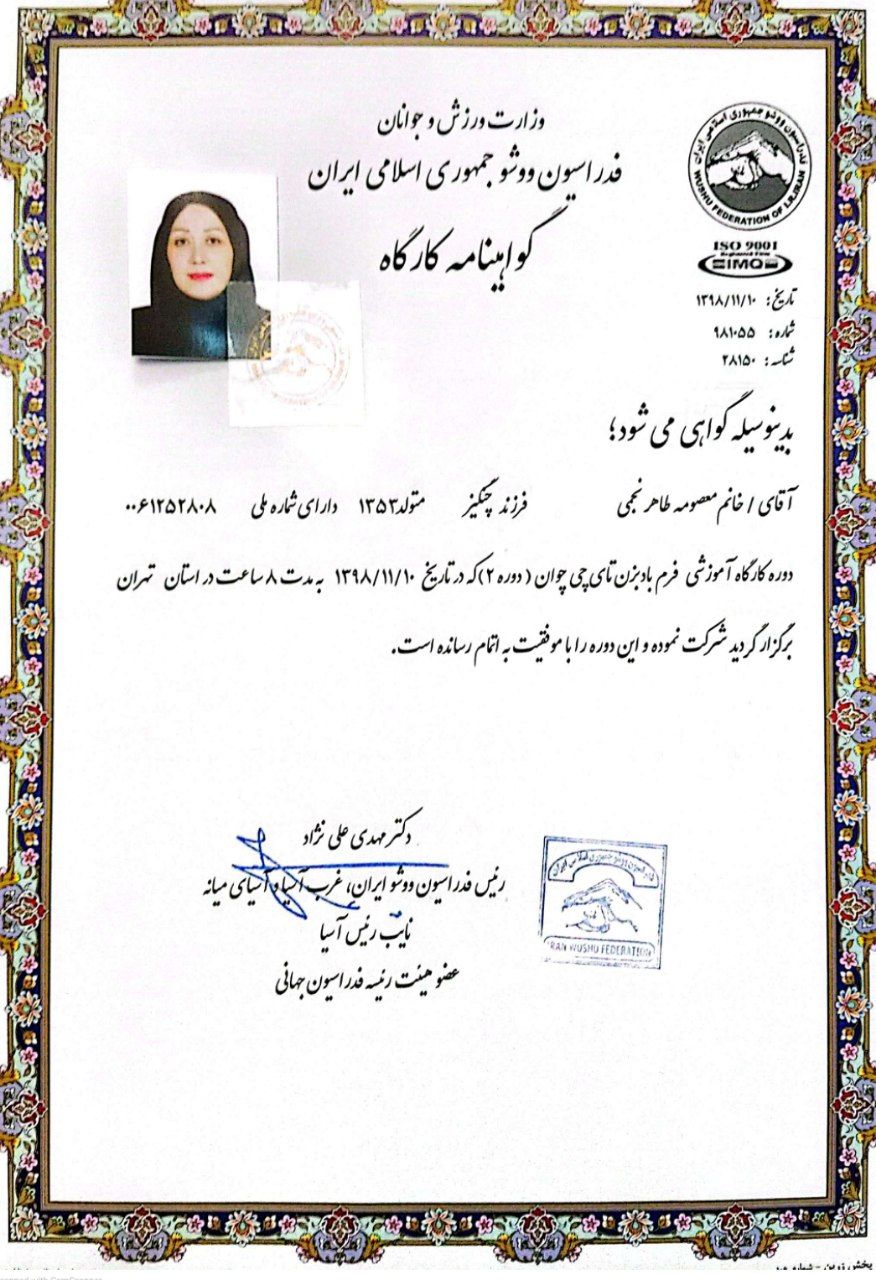 وزارت ورزش و جوانان
فدراسیون ووشو جمهوری اسلامی ایران
گواهینامه کارگاه
فدراسیون ووشو جمهوری اسلامی ایران
WUSHU FEDERATION OF I.R.IRAN
ISO 9001
SIMO
تاریخ: ۱۳۹۸/۱۱/۱۰
شماره: ۹۸۱۰۵۵
شناسه: ۲۸۱۵۰
بدینوسیله گواهی می شود؛
آقای / خانم معصومه طاهر نجمی فرزند چنگیز متولد ۱۳۵۳ دارای شماره ملی ۰۰۶۱۲۵۲۸۰۸
دوره کارگاه آموزشی فرم بادبزن تای چی چوان (دوره ۲) که در تاریخ ۱۳۹۸/۱۱/۱۰ به مدت ۸ ساعت در استان تهران
برگزار گردید شرکت نموده و این دوره را با موفقیت به اتمام رسانده است.
دکتر مهدی علی نژاد
رئیس فدراسیون ووشو ایران، غرب آسیا و آسیای میانه
نایب رئیس آسیا
عضو هیئت رئیسه فدراسیون جهانی
فدراسیون ووشو جمهوری اسلامی ایران
IRAN WUSHU FEDERATION